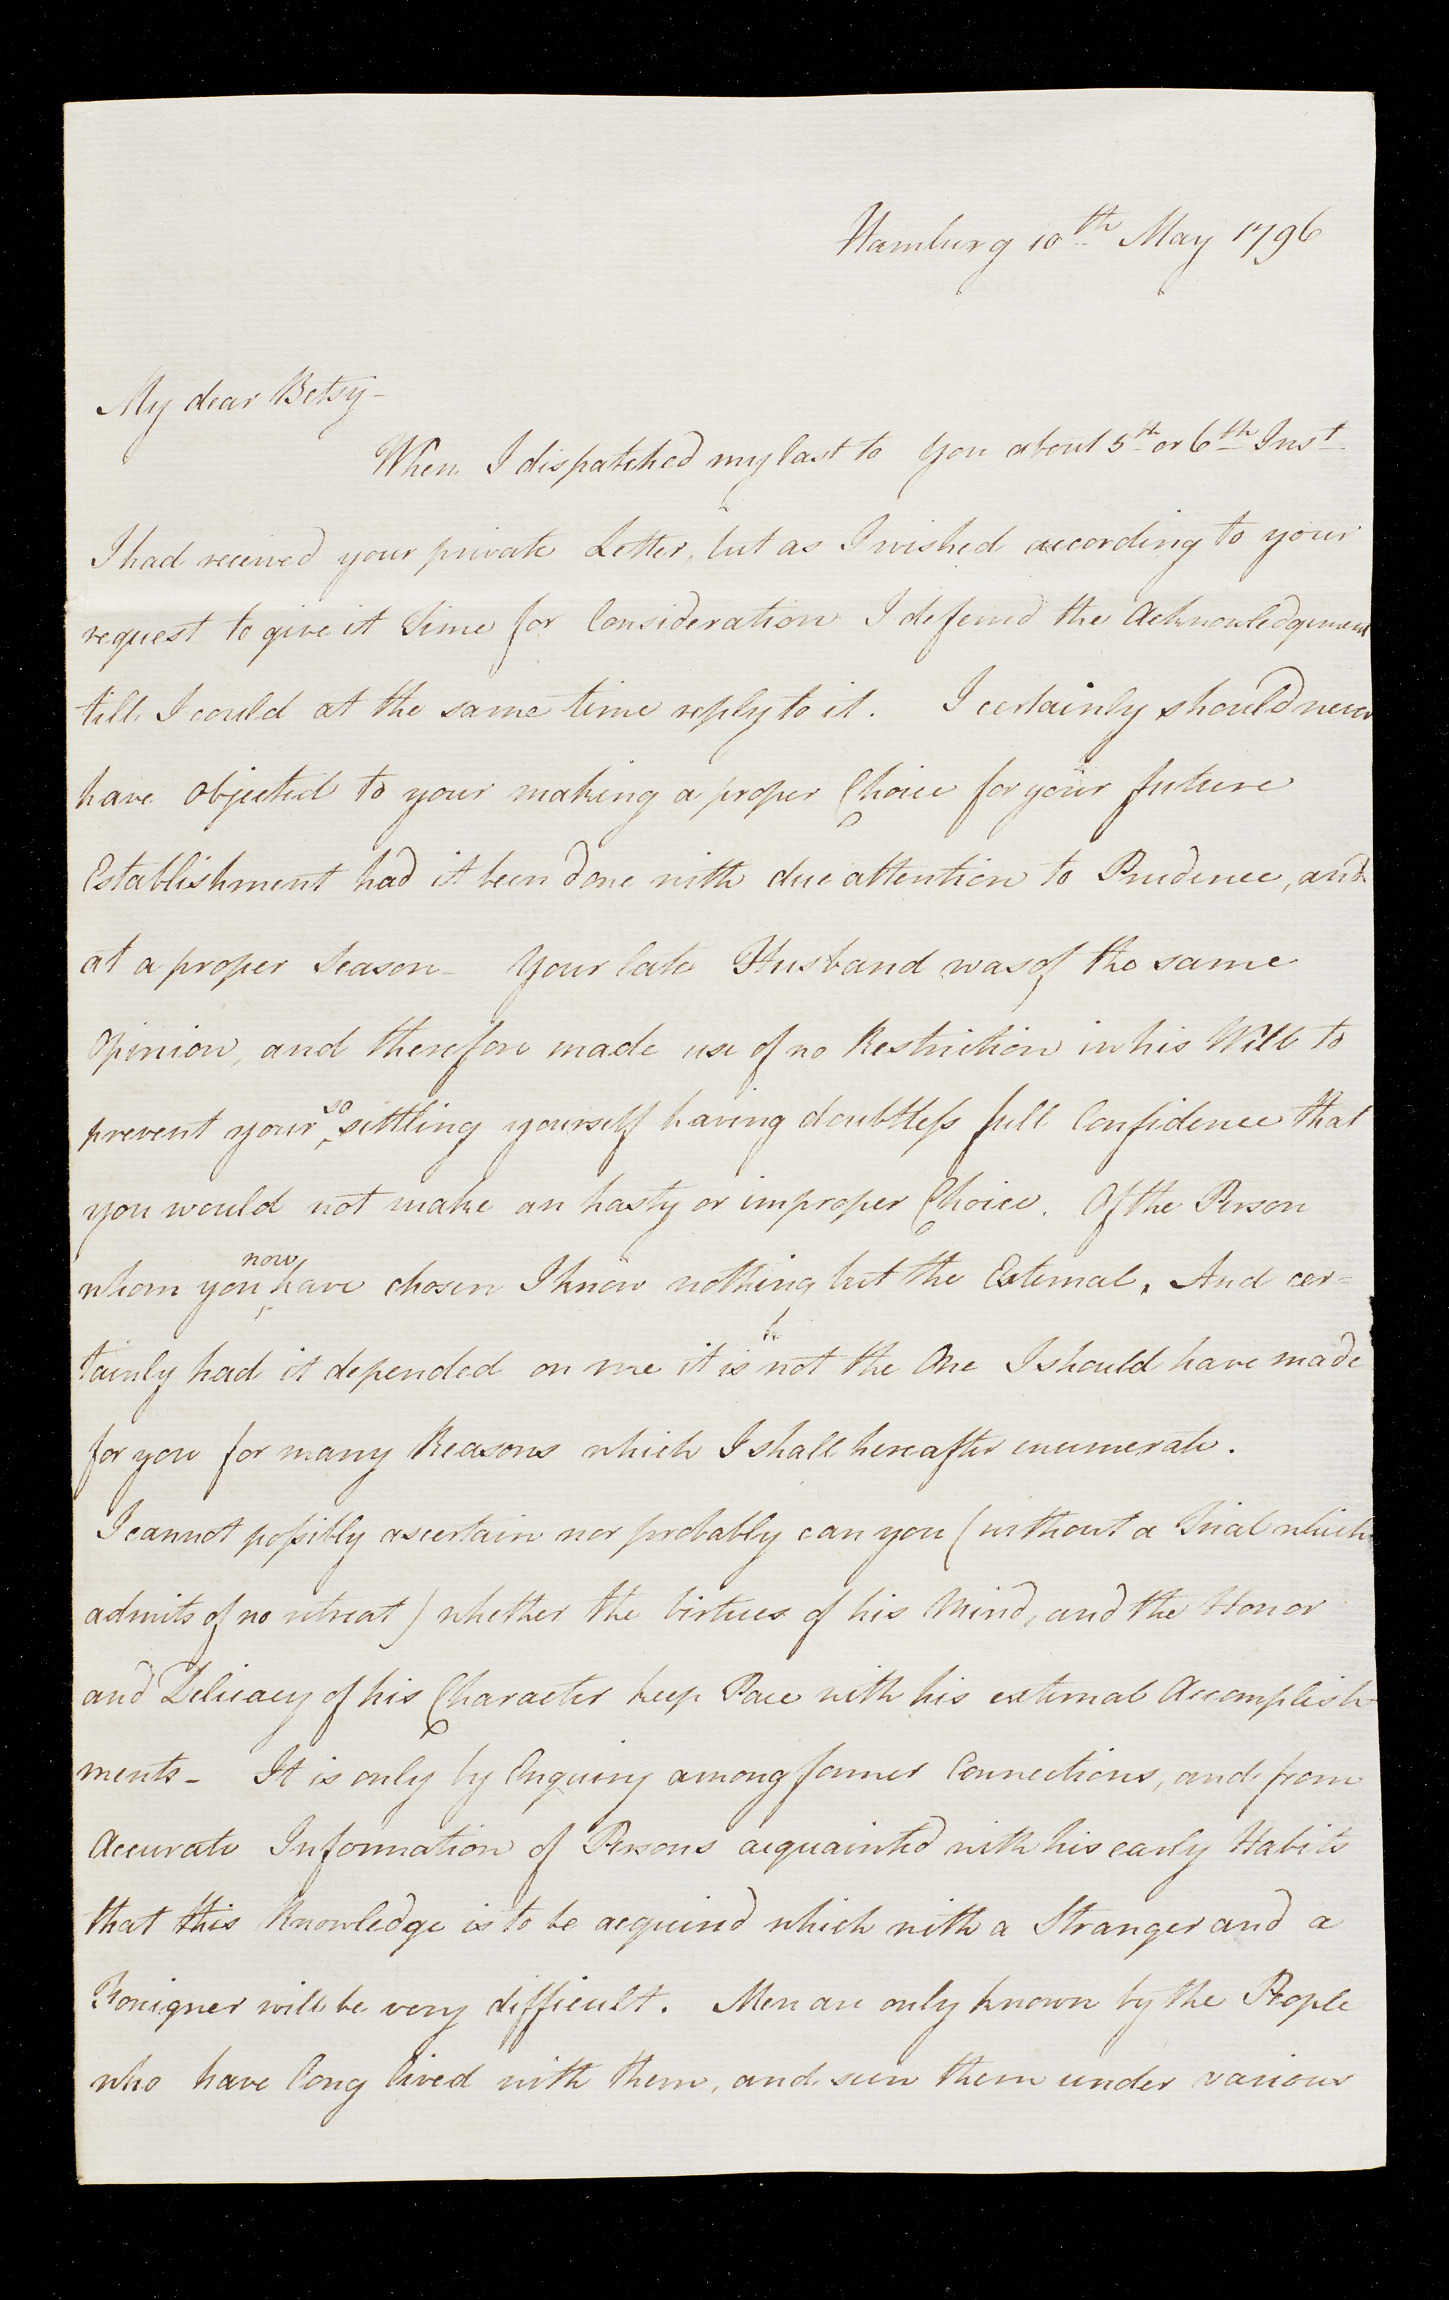 Hamburg 10th May 1796
My dear Betsy-
When I dispatched my last to You about 5th or 6th Inst
I had received your private Letter, but as I wished according to your
request to give it time for Consideration I deferred the Acknowledgement
till I could at the same time reply to it. I certainly should never
have objected to your making a proper Choice for your future
Establishment had it been done with due attention to Prudence, and
at a proper Season- Your late Husband was of the same
Opinion, and therefore made use of no Restriction in his Will to
prevent your so settling yourself having doubtless full Confidence that
you would not make an hasty or improper Choice. Of the Person
whom you now have chosen I know nothing but the External. And cer=
tainly had it depended on me it is not the One I should have made
for you for many Reasons which I shall hereafter enumerate.
I cannot possibly ascertain nor probably can you (without a Trial which
admits of no retreat) whether the Virtues of his Mind, and the Honor
and Delicacy of his Character keep Pace with his external Accomplish-
ments- It is only by Enquiry among former Connections, and from
Accurate Information of Persons acquainted with his early Habits
that this Knowledge is to be acquired which with a Stranger and a
Foreigner will be very difficult. Men are only known by the People
who have long lived with them, and seen them under various